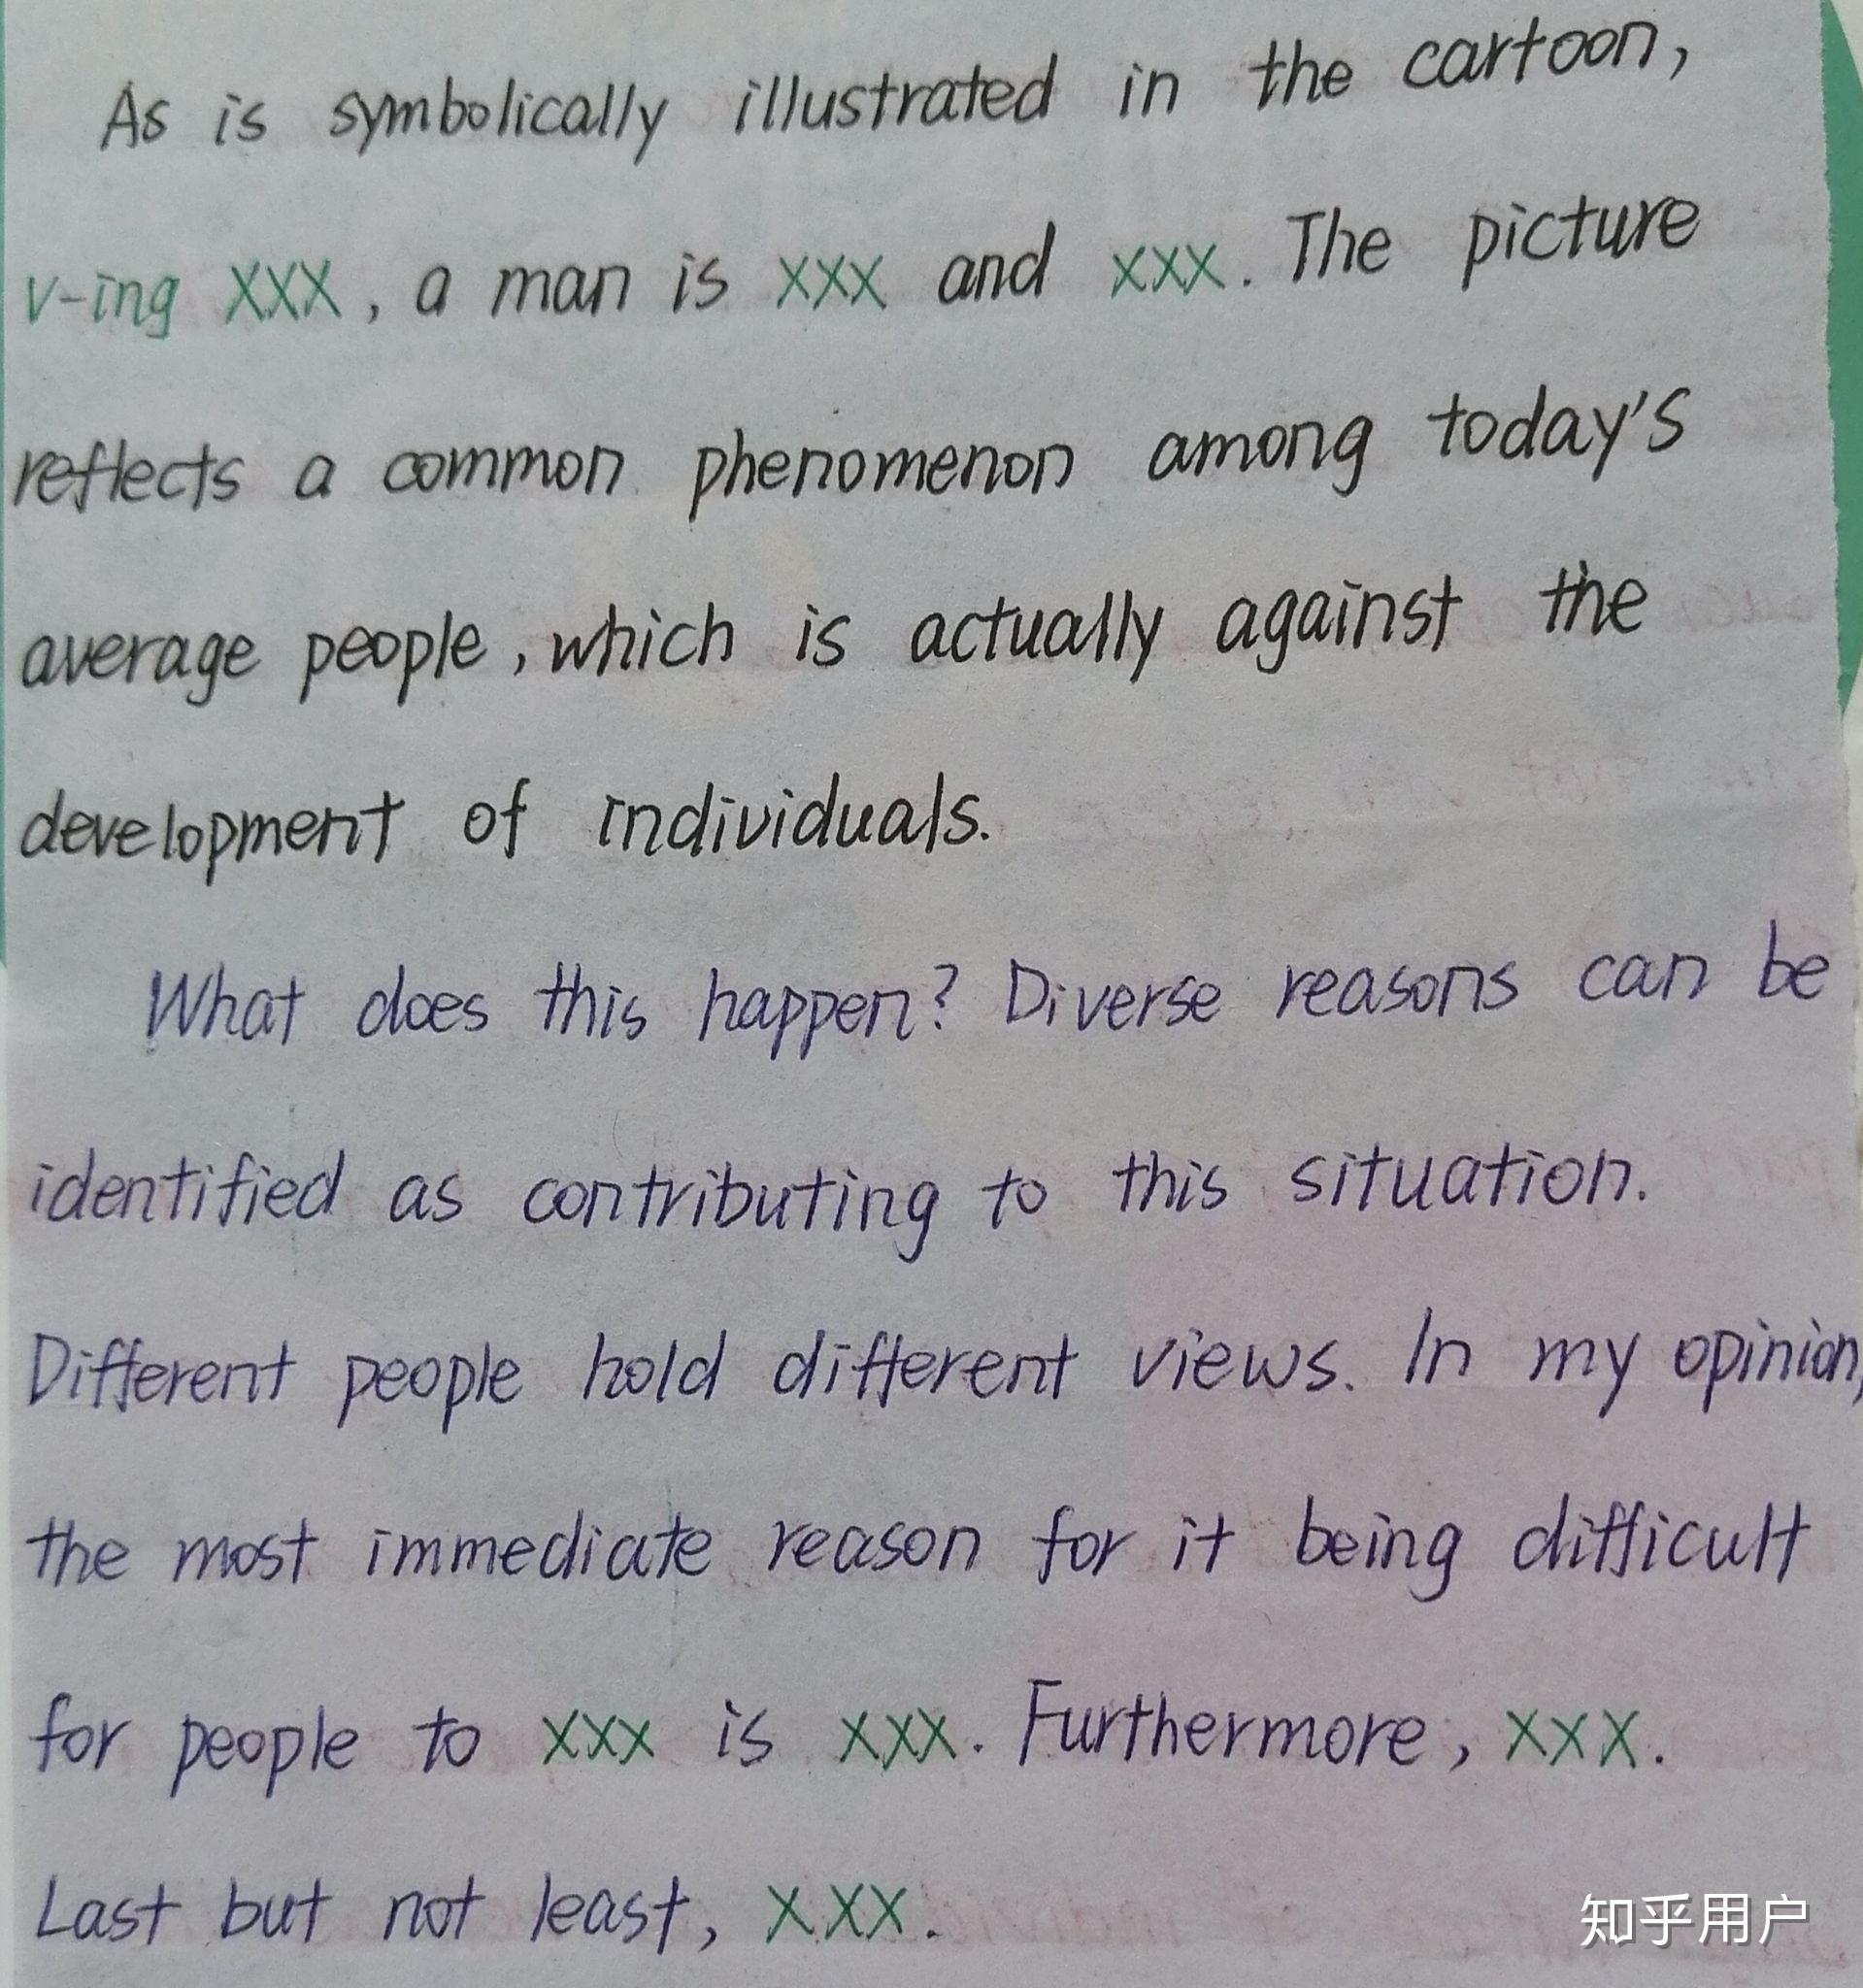 As is symbolically illustrated in the cartoon,
v-ing XXX, a man is XXX and XXX. The picture
reflects a common phenomenon among today's
average people, which is actually against the
development of individuals.
What does this happen? Diverse reasons can be
identified as contributing to this situation.
Different people hold different views. In my opinion,
the most immediate reason for it being difficult
for people to XXX is XXX. Furthermore, XXX.
Last but not least, XXX.
知乎用户